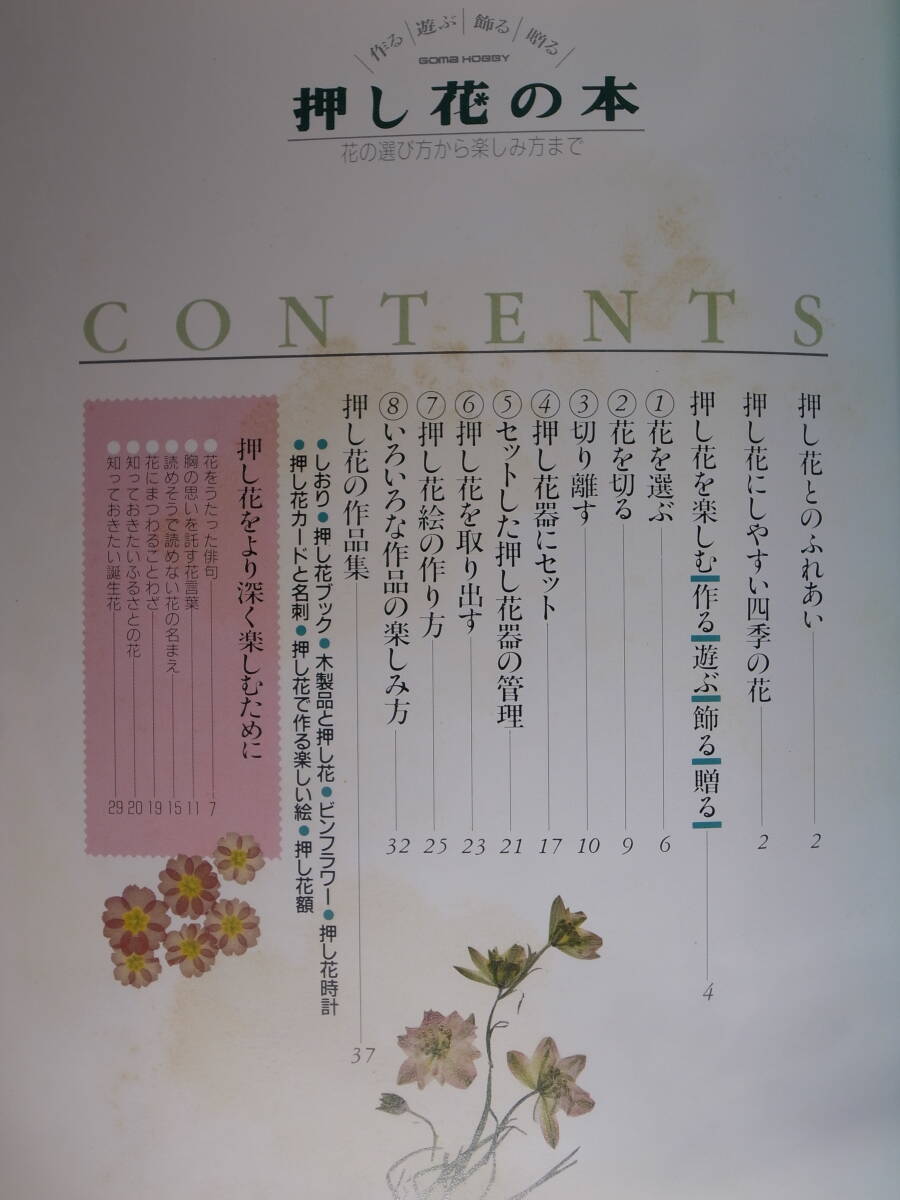 作る|遊ぶ|飾る|贈る
GOMA HOBBY
押し花の本
花の選び方から楽しみ方まで
CONTENTS
押し花とのふれあい 2
押し花にしやすい四季の花 2
押し花を楽しむ|作る|遊ぶ|飾る|贈る| 4
①花を選ぶ 6
②花を切る 9
③切り離す 10
④押し花器にセット 17
⑤セットした押し花器の管理 21
⑥押し花を取り出す 23
⑦押し花絵の作り方 25
⑧いろいろな作品の楽しみ方 32
押し花の作品集 37
●しおり●押し花ブック●木製品と押し花●ビンフラワー●押し花時計
●押し花カードと名刺●押し花で作る楽しい絵●押し花額
押し花をより深く楽しむために
●花をうたった俳句 7
●胸の思いを託す花言葉 11
●読めそうで読めない花の名まえ 15
●花にまつわることわざ 19
●知っておきたいふるさとの花 20
●知っておきたい誕生花 29